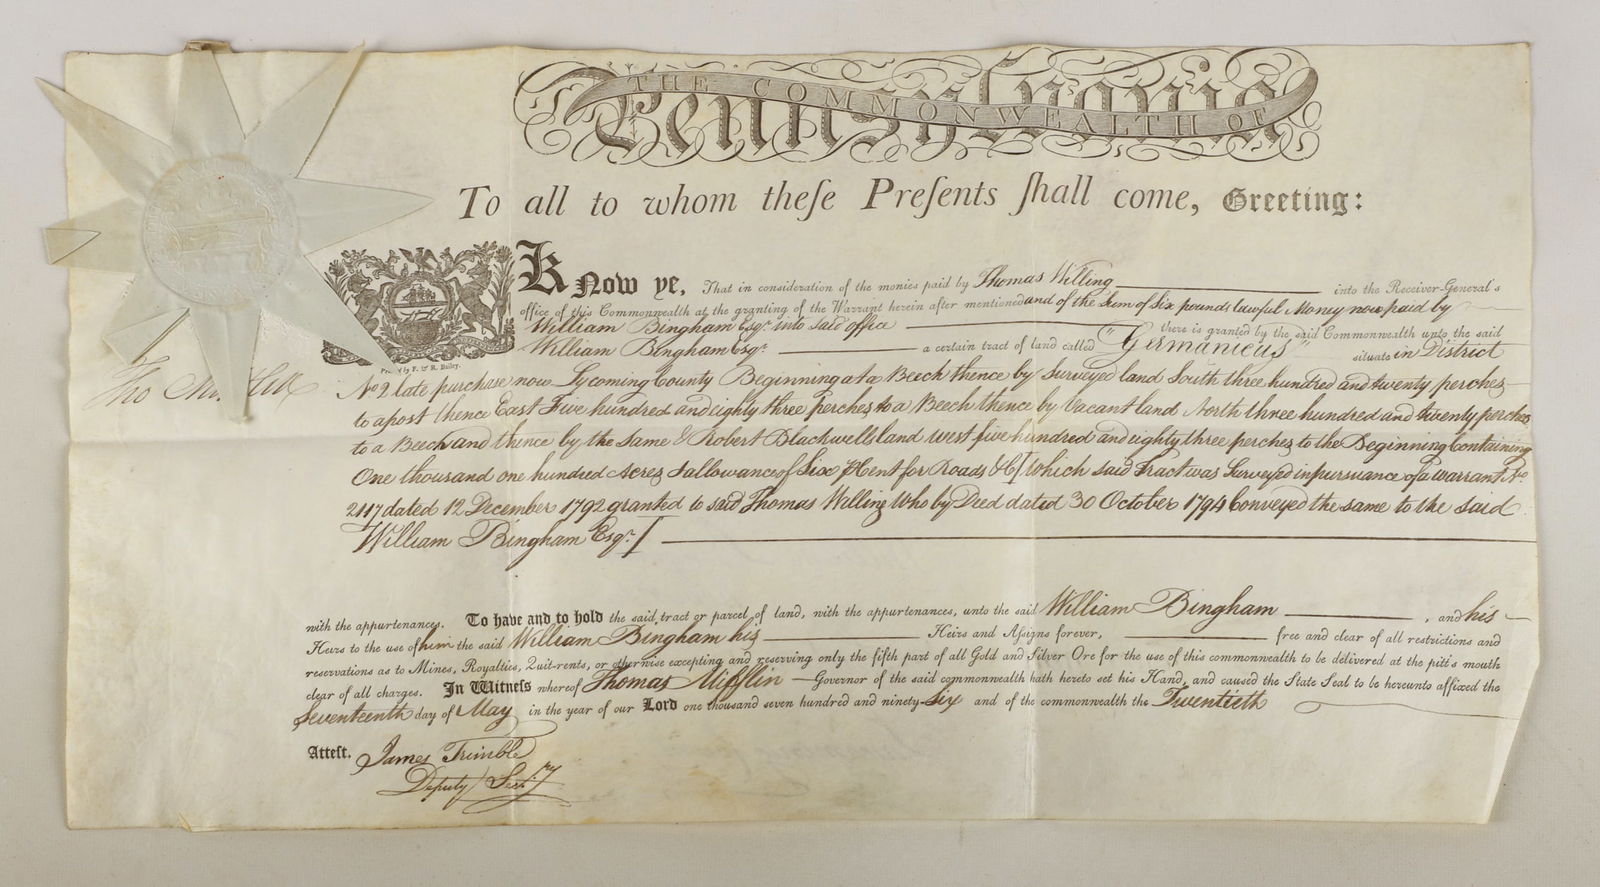 THE COMMONWEALTH OF
Pennsylvania
To all to whom theſe Preſents ſhall come, Greeting:
Know ye, That in consideration of the monies paid by Thomas Willing into the Receiver-General's
office of this Commonwealth at the granting of the Warrant herein after mentioned and of the Sum of Six pounds lawful Money now paid by
William Bingham Esqr. into Said office there is granted by the said Commonwealth unto the said
William Bingham Esqr. a certain tract of land called "Germanicus" situate in District
No 2 late purchase now Lycoming County Beginning at a Beech thence by Surveyed land South three hundred and twenty perches
to a post thence East Five hundred and eighty three perches to a Beech thence by Vacant land North three hundred and twenty perches
to a Beech and thence by the Same & Robert Blackwells land West five hundred and eighty three perches to the Beginning Containing
One thousand one hundred Acres & allowance of Six ⅌ Cent for Roads &C [Which said Tract was Surveyed in pursuance of a Warrant No
2117 dated 12 December 1792 granted to said Thomas Willing Who by Deed dated 30 October 1794 Conveyed the same to the said
William Bingham Esqr.]
with the appurtenances. To have and to hold the said tract or parcel of land, with the appurtenances, unto the said William Bingham, and his
Heirs to the use of him the said William Bingham his Heirs and Aſsigns forever, free and clear of all restrictions and
reservations as to Mines, Royalties, Quit-rents, or otherwise excepting and reserving only the fifth part of all Gold and Silver Ore for the use of this commonwealth to be delivered at the pitt's mouth
clear of all charges. In Witneſs whereof Thomas Mifflin Governor of the said commonwealth hath hereto set his Hand, and caused the State Seal to be hereunto affixed the
Seventeenth day of May in the year of our Lord one thousand seven hundred and ninety-Six and of the commonwealth the Twentieth
Atteſt. James Trimble
Deputy Secry
Printed by F. & R. Bailey.
Tho Mifflin